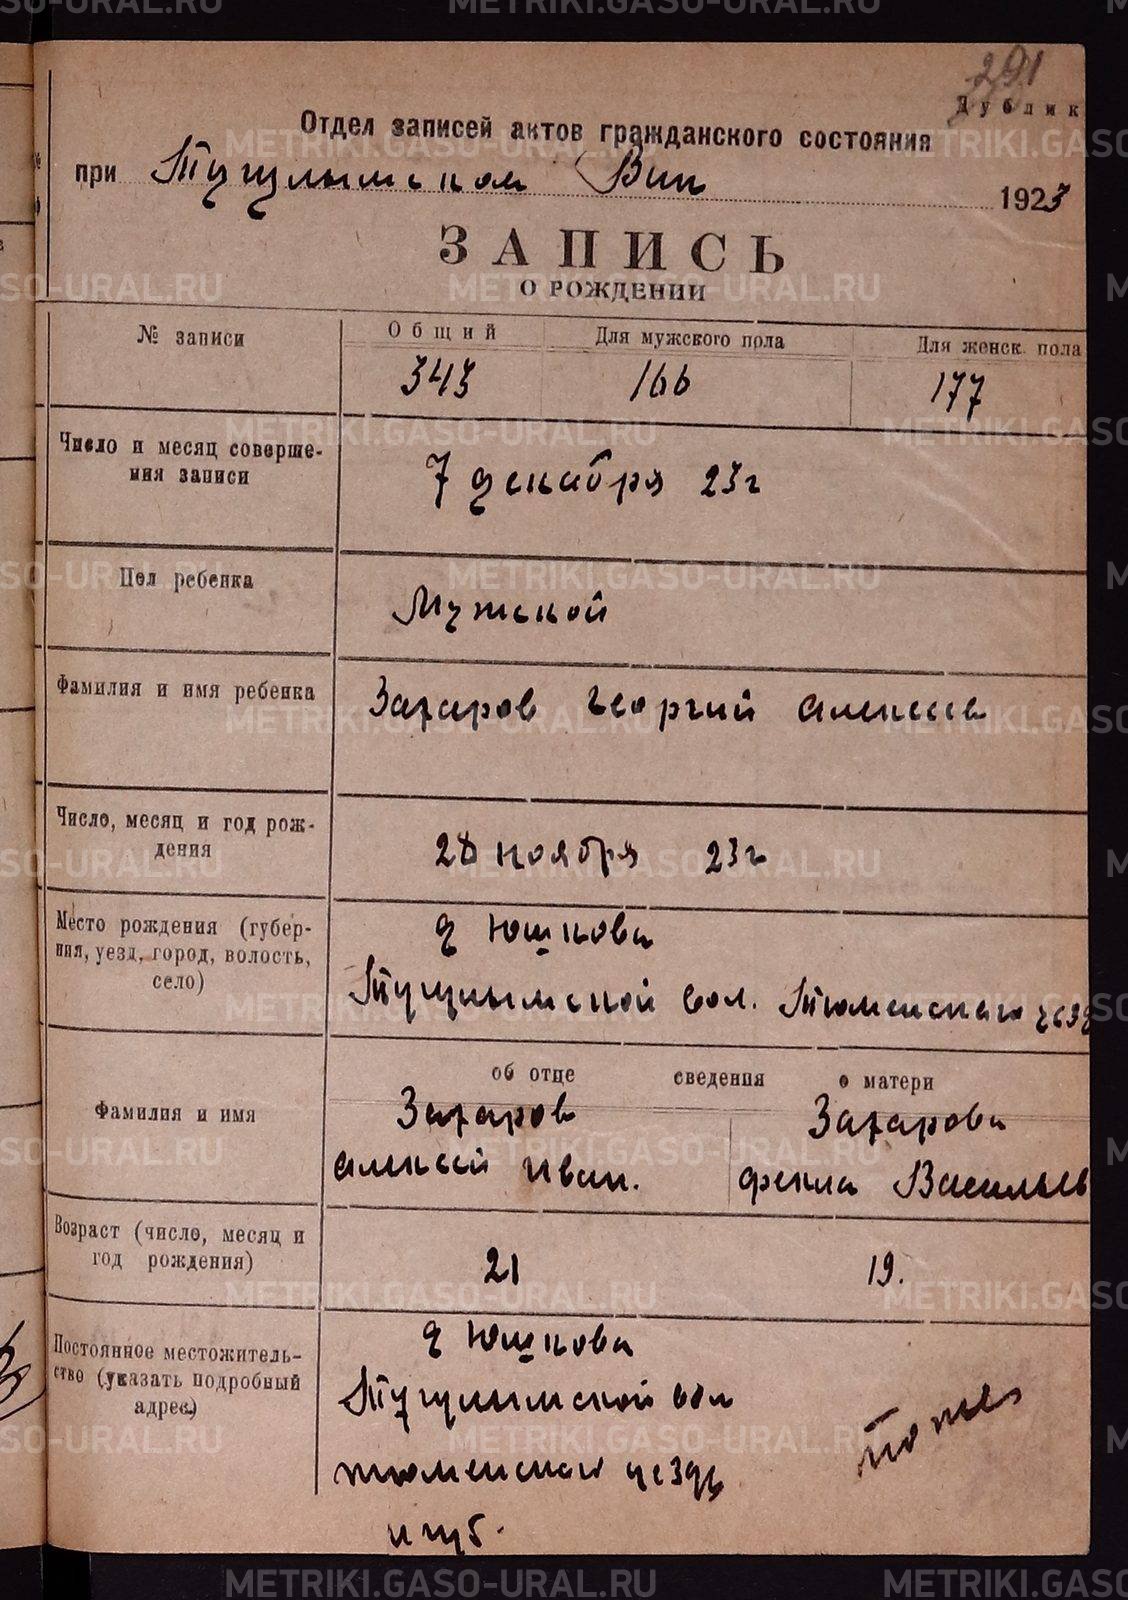 291
Дублик
Отдел записей актов гражданского состояния
при Тугулымском Вик 1923
ЗАПИСЬ
О РОЖДЕНИИ
№ записи Общий Для мужского пола Для женск. пола
343 166 177
Число и месяц соверше-
ния записи
7 декабря 23г
Пол ребенка
Мужской
Фамилия и имя ребенка
Захаров Георгий Алексеев
Число, месяц и год рож-
дения
28 ноября 23г
Место рождения (губер-
ния, уезд, город, волость,
село)
д Юшкова
Тугулымской вол. Тюменского уезд
об отце сведения о матери
Фамилия и имя
Захаров Захарова
Алексей Иван. Фекла Васильев
Возраст (число, месяц и
год рождения)
21 19.
Постоянное местожитель-
ство (указать подробный
адрес)
д Юшкова
Тугулымской вол
тюменского уезда
и губ.
то же
METRIKI.GASO-URAL.RU